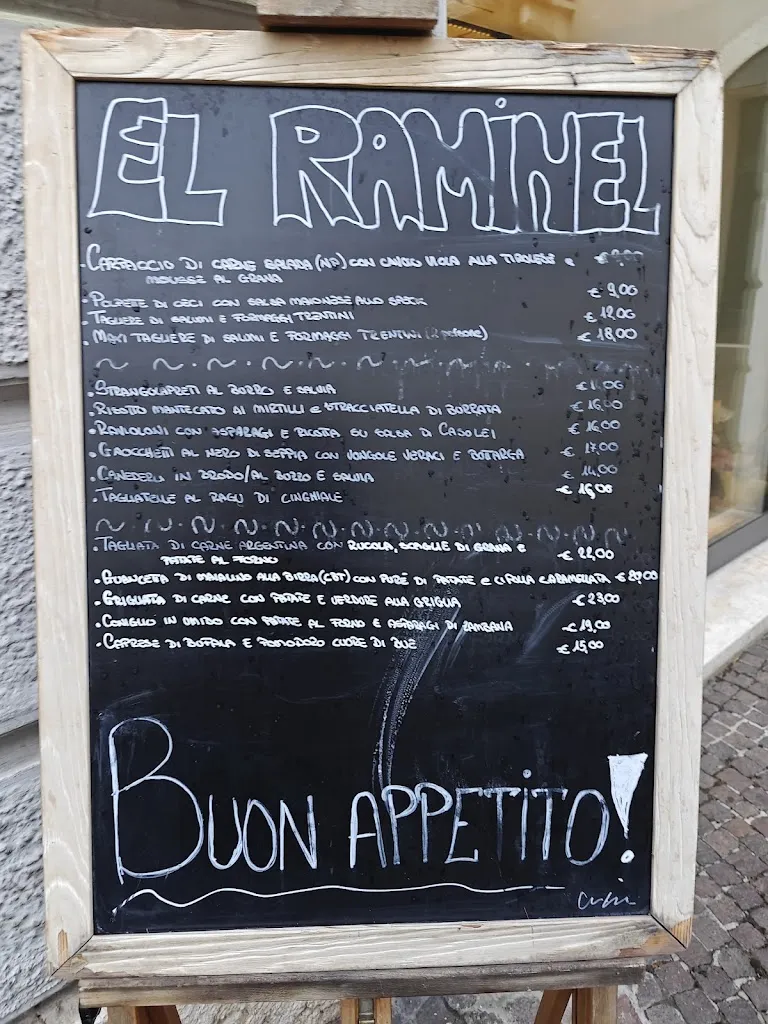 EL RAMINEL
•CARPACCIO DI CARNE SALADA (NF) CON CAVOLO VIOLA ALLA TIROLESE E €
MOUSSE AL GRANA
•POLPETTE DI CECI CON SALSA MAIONESE ALLO SPECK € 9,00
•TAGLIERE DI SALUMI E FORMAGGI TRENTINI € 12,00
•MAXI TAGLIERE DI SALUMI E FORMAGGI TRENTINI (2 persone) € 18,00
•STRANGOLAPRETI AL BURRO E SALVIA € 11,00
•RISOTTO MANTECATO AI MIRTILLI E STRACCIATELLA DI BURRATA € 16,00
•RAVIOLONI CON ASPARAGI E RICOTTA, SU SALSA DI CASOLET € 16,00
•GNOCCHETTI AL NERO DI SEPPIA CON VONGOLE VERACI E BOTTARGA € 17,00
•CANEDERLI IN BRODO/AL BURRO E SALVIA € 14,00
•TAGLIATELLE AL RAGÙ DI CINGHIALE € 16,00
•TAGLIATA DI CARNE ARGENTINA CON RUCOLA, SCAGLIE DI GRANA E € 22,00
PATATE AL FORNO
•GUANCETTA DI MAIALINO ALLA BIRRA (CBT) CON PURÈ DI PATATE E CIPOLLA CARAMELLATA € 20,00
•GRIGLIATA DI CARNE CON PATATE E VERDURE ALLA GRIGLIA € 23,00
•CONIGLIO IN UMIDO CON PATATE AL FORNO E ASPARAGI DI ZAMBANA € 19,00
•CAPRESE DI BUFALA E POMODORO CUORE DI BUE € 15,00
BUON APPETITO!